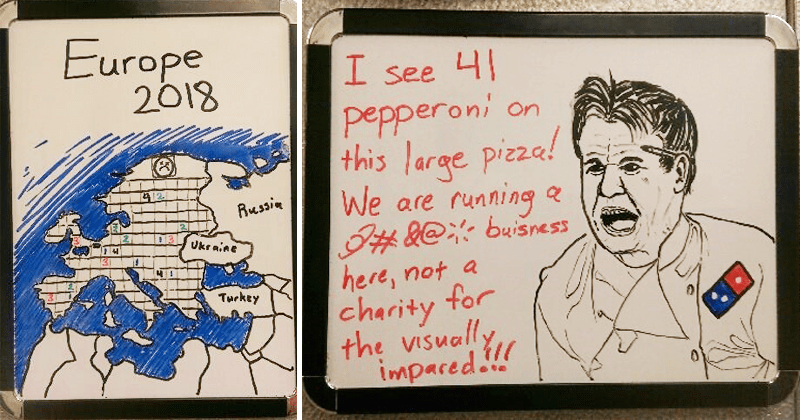 Europe
2018
4 2
Russia
2 2
3 2 1 3
Ukraine
1 4
3 1
4 1
2
3
Turkey
I see 41
pepperoni on
this large pizza!
We are running a
#&@ buisness
here, not a
charity for
the visually
impared!!!